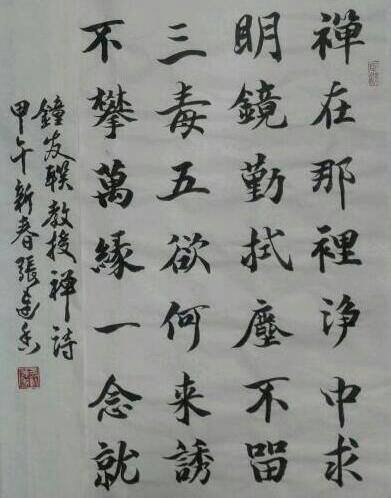 禪在那裡淨中求
明鏡勤拭塵不留
三毒五欲何来誘
不攀萬緣一念就
鐘友聯教授禅詩
甲午新春張